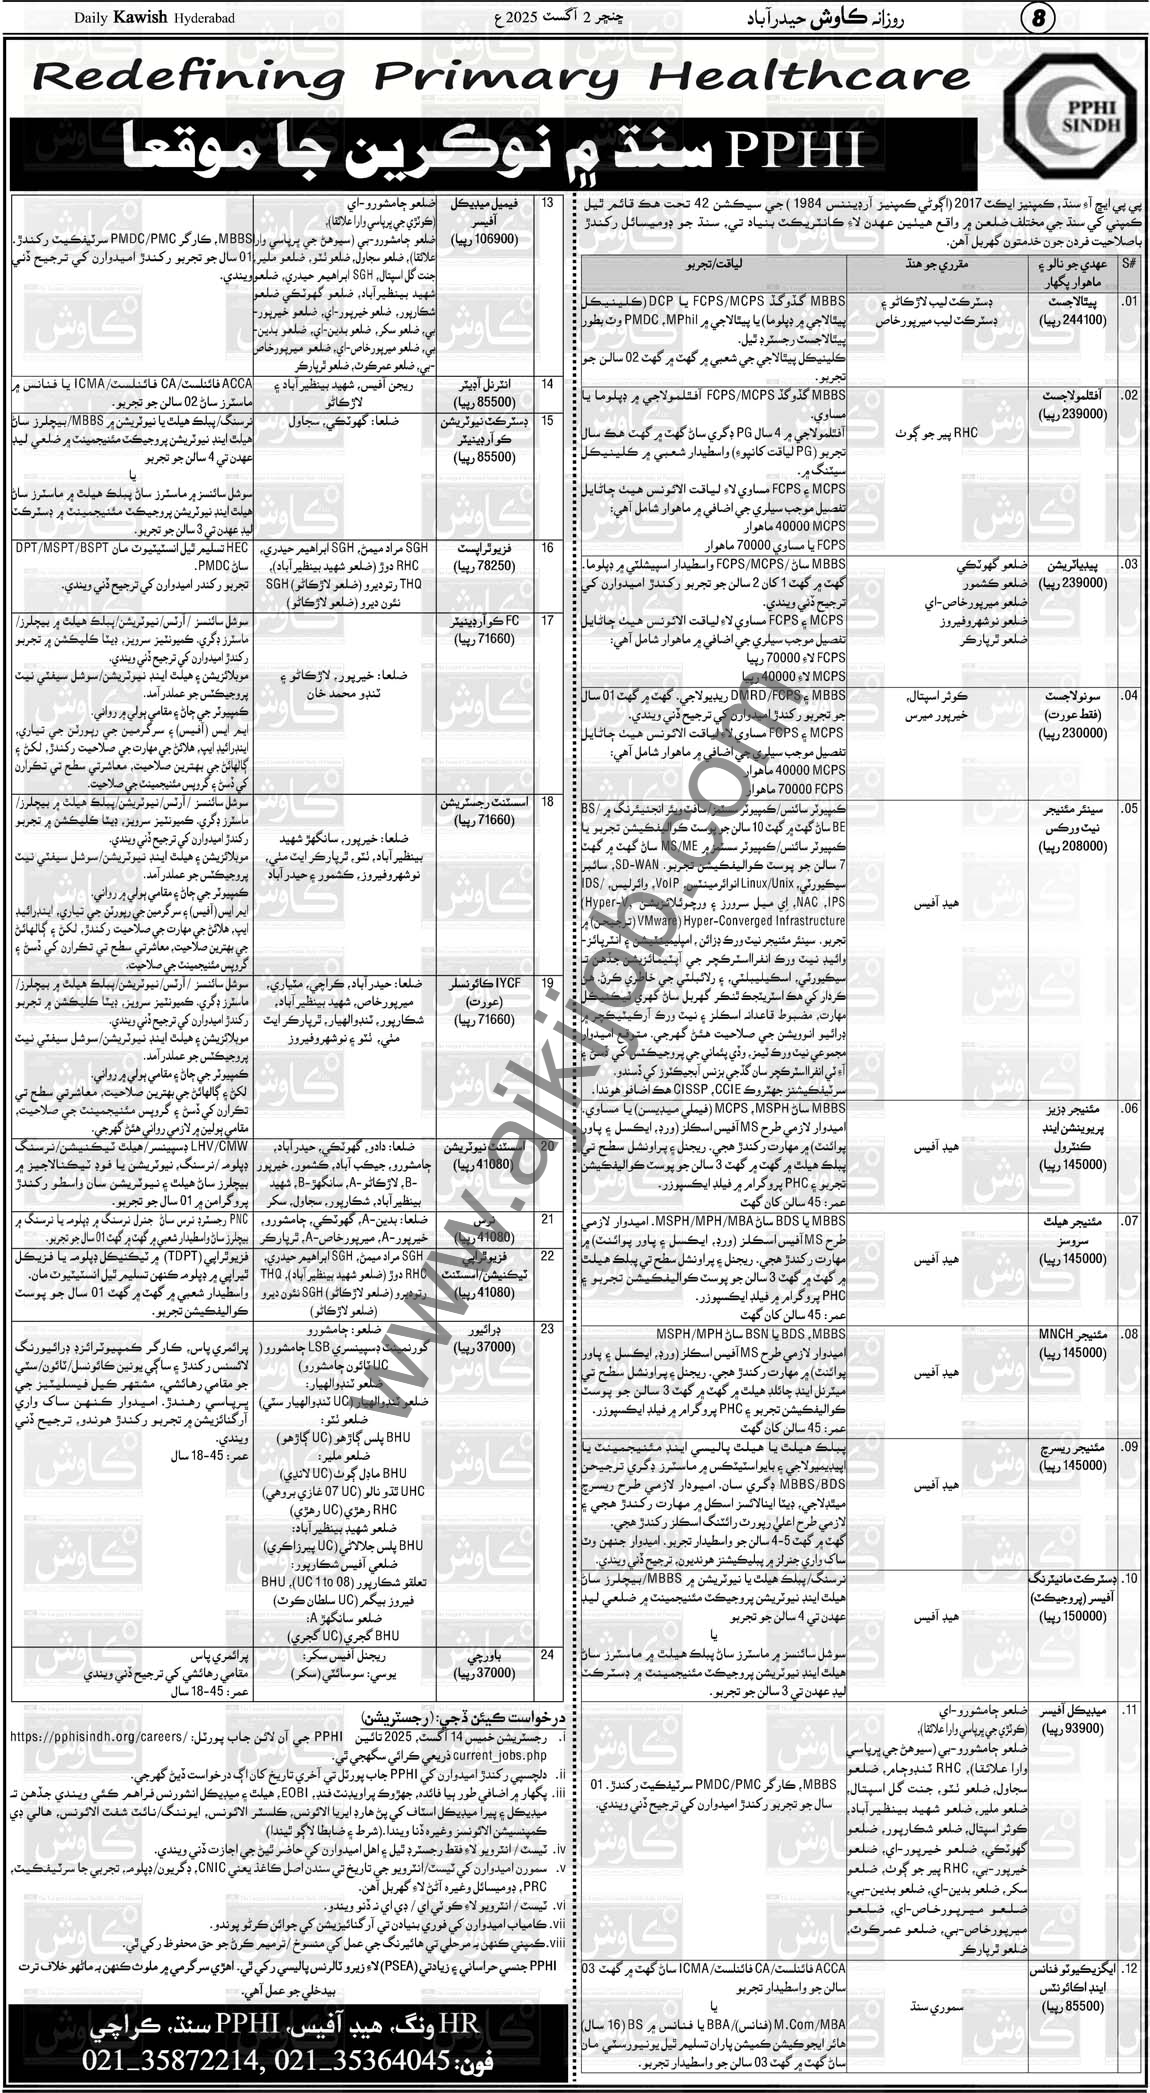 Daily Kawish Hyderabad
ڇنڇر 2 آگسٽ 2025ع
روزانه ڪاوش حيدرآباد
8
Redefining Primary Healthcare
PPHI سنڌ ۾ نوڪرين جا موقعا
PPHI
SINDH
پي پي ايڇ آءِ سنڌ، ڪمپنيز ايڪٽ 2017 (اڳوڻي ڪمپنيز آرڊيننس 1984) جي سيڪشن 42 تحت هڪ قائم ٿيل
ڪمپني کي سنڌ جي مختلف ضلعن ۾ واقع هيٺين عهدن لاءِ ڪانٽريڪٽ بنياد تي، سنڌ جو ڊوميسائل رکندڙ
باصلاحيت فردن جون خدمتون گهربل آهن.
S#
عهدي جو نالو ۽
ماهوار پگهار
مقرري جو هنڌ
لياقت/تجربو
01.
پيٿالاجسٽ
(244100 رپيا)
ڊسٽرڪٽ ليب لاڙڪاڻو ۽
ڊسٽرڪٽ ليب ميرپورخاص
MBBS گڏوگڏ FCPS/MCPS يا DCP (ڪلينيڪل
پيٿالاجي ۾ ڊپلوما) يا پيٿالاجي ۾ PMDC ،MPhil وٽ بطور
پيٿالاجسٽ رجسٽرڊ ٿيل.
ڪلينيڪل پيٿالاجي جي شعبي ۾ گهٽ ۾ گهٽ 02 سالن جو
تجربو.
02.
آفٿلمولاجسٽ
(239000 رپيا)
RHC پير جو ڳوٺ
MBBS گڏوگڏ FCPS/MCPS آفٿلمولاجي ۾ ڊپلوما يا
مساوي.
آفٿلمولاجي ۾ 4 سال PG ڊگري ساڻ گهٽ ۾ گهٽ هڪ سال
تجربو (PG لياقت کانپوءِ) واسطيدار شعبي ۾ ڪلينيڪل
سيٽنگ ۾.
MCPS ۽ FCPS مساوي لاءِ لياقت الائونس هيٺ ڄاڻايل
تفصيل موجب سيلري جي اضافي ۾ ماهوار شامل آهي:
MCPS 40000 ماهوار
FCPS يا مساوي 70000 ماهوار
03.
پيڊياٽريشن
(239000 رپيا)
ضلعو گهوٽڪي
ضلعو ڪشمور
ضلعو ميرپورخاص-اي
ضلعو نوشهروفيروز
ضلعو ٿرپارڪر
MBBS ساڻ FCPS/MCPS واسطيدار اسپيشلٽي ۾ ڊپلوما.
گهٽ ۾ گهٽ 1 کان 2 سالن جو تجربو رکندڙ اميدوارن کي
ترجيح ڏني ويندي.
MCPS ۽ FCPS مساوي لاءِ لياقت الائونس هيٺ ڄاڻايل
تفصيل موجب سيلري جي اضافي ۾ ماهوار شامل آهي:
FCPS لاءِ 70000 رپيا
MCPS لاءِ 40000 رپيا
04.
سونولاجسٽ
(فقط عورت)
(230000 رپيا)
ڪوثر اسپتال،
خيرپور ميرس
MBBS ۽ DMRD/FCPS ريڊيولاجي. گهٽ ۾ گهٽ 01 سال
جو تجربو رکندڙ اميدوارن کي ترجيح ڏني ويندي.
MCPS ۽ FCPS مساوي لاءِ لياقت الائونس هيٺ ڄاڻايل
تفصيل موجب سيلري جي اضافي ۾ ماهوار شامل آهي:
MCPS 40000 ماهوار
FCPS 70000 ماهوار
05.
سينئر مئنيجر
نيٽ ورڪس
(208000 رپيا)
هيڊ آفيس
ڪمپيوٽر سائنس/ڪمپيوٽر سسٽمز/سافٽ ويئر انجنيئرنگ ۾ BS/
BE ساڻ گهٽ ۾ گهٽ 10 سالن جو پوسٽ ڪواليفڪيشن تجربو يا
ڪمپيوٽر سائنس/ڪمپيوٽر سسٽمز ۾ MS/ME ساڻ گهٽ ۾ گهٽ
7 سالن جو پوسٽ ڪواليفڪيشن تجربو. SD-WAN، سائبر
سيڪيورٽي، Linux/Unix انوائرمينٽس، VoIP، وائرليس، IDS/
NAC ،IPS، اي ميل سرورز ۽ ورچوئلائزيشن (Hyper-V,
VMware) Hyper-Converged Infrastructure (ترجيحن) ۾
تجربو. سينئر مئنيجر نيٽ ورڪ ڊزائن، امپليمينٽيشن ۽ انٽرپرائز-
وائيڊ نيٽ ورڪ انفرااسٽرڪچر جي آپٽيمائزيشن جڏهن ته
سيڪيورٽي، اسڪيليبلٽي، ۽ رلائبلٽي جي خاطري ڪرڻ. هن
ڪردار کي هڪ اسٽريٽجڪ ٿنڪر گهربل ساڻ گهري ٽيڪنيڪل
مهارت، مضبوط قاعدانه اسڪلز ۽ نيٽ ورڪ آرڪيٽيڪچر ۾
ڊرائيو انوويشن جي صلاحيت هئڻ گهرجي. مترفع اميدوار
مجموعي نيٽ ورڪ ٽيمز، وڏي پئماني جي پروجيڪٽس کي ڏسڻ ۽
آءِ ٽي انفرااسٽرڪچر سان گڏجي بزنس آبجيڪٽوز کي ڏسندو.
سرٽيفڪيشنز جهڙوڪ CISSP ،CCIE هڪ اضافو هوندا.
06.
مئنيجر ڊزيز
پريوينشن اينڊ
ڪنٽرول
(145000 رپيا)
هيڊ آفيس
MBBS ساڻ MCPS ،MSPH (فيملي ميڊيسن) يا مساوي.
اميدوار لازمي طرح MS آفيس اسڪلز (ورڊ، ايڪسل ۽ پاور
پوائنٽ) ۾ مهارت رکندڙ هجي. ريجنل ۽ پراونشل سطح تي
پبلڪ هيلٿ ۾ گهٽ ۾ گهٽ 3 سالن جو پوسٽ ڪواليفڪيشن
تجربو ۽ PHC پروگرام ۾ فيلڊ ايڪسپوزر.
عمر: 45 سالن کان گهٽ
07.
مئنيجر هيلٿ
سروسز
(145000 رپيا)
هيڊ آفيس
MBBS يا BDS ساڻ MSPH/MPH/MBA. اميدوار لازمي
طرح MS آفيس اسڪلز (ورڊ، ايڪسل ۽ پاور پوائنٽ) ۾
مهارت رکندڙ هجي. ريجنل ۽ پراونشل سطح تي پبلڪ هيلٿ
۾ گهٽ ۾ گهٽ 3 سالن جو پوسٽ ڪواليفڪيشن تجربو ۽
PHC پروگرام ۾ فيلڊ ايڪسپوزر.
عمر: 45 سالن کان گهٽ
08.
مئنيجر MNCH
(145000 رپيا)
هيڊ آفيس
BDS ،MBBS يا BSN ساڻ MSPH/MPH
اميدوار لازمي طرح MS آفيس اسڪلز (ورڊ، ايڪسل ۽ پاور
پوائنٽ) ۾ مهارت رکندڙ هجي. ريجنل ۽ پراونشل سطح تي
ميٽرنل اينڊ چائلڊ هيلٿ ۾ گهٽ ۾ گهٽ 3 سالن جو پوسٽ
ڪواليفڪيشن تجربو ۽ PHC پروگرام ۾ فيلڊ ايڪسپوزر.
عمر: 45 سالن کان گهٽ
09.
مئنيجر ريسرچ
(145000 رپيا)
هيڊ آفيس
پبلڪ هيلٿ يا هيلٿ پاليسي اينڊ مئنيجمينٽ يا
اپيڊيميولاجي ۽ بايواسٽيٽڪس ۾ ماسٽرز ڊگري ترجيحن
MBBS/BDS ڊگري سان. اميدوار لازمي طرح ريسرچ
ميٿڊلاجي، ڊيٽا اينالائسز اسڪل ۾ مهارت رکندڙ هجي ۽
لازمي طرح اعليٰ رپورٽ رائٽنگ اسڪلز رکندڙ هجي.
گهٽ ۾ گهٽ 4-5 سالن جو واسطيدار تجربو. اميدوار جنهن وٽ
ساک واري جنرلز ۾ پبليڪيشنز هونديون، ترجيح ڏني ويندي.
10.
ڊسٽرڪٽ مانيٽرنگ
آفيسر (پروجيڪٽ)
(150000 رپيا)
هيڊ آفيس
نرسنگ/پبلڪ هيلٿ يا نيوٽريشن ۾ MBBS/بيچلرز ساڻ
هيلٿ اينڊ نيوٽريشن پروجيڪٽ مئنيجمينٽ ۾ ضلعي ليڊ
عهدن تي 4 سالن جو تجربو
يا
سوشل سائنسز ۾ ماسٽرز ساڻ پبلڪ هيلٿ ۾ ماسٽرز ساڻ
هيلٿ اينڊ نيوٽريشن پروجيڪٽ مئنيجمينٽ ۾ ڊسٽرڪٽ
ليڊ عهدن تي 3 سالن جو تجربو.
11.
ميڊيڪل آفيسر
(93900 رپيا)
ضلعو ڄامشورو-اي
(ڪوٽڙي جي ڀرپاسي وارا علائقا)،
ضلعو ڄامشورو-بي (سيوهڻ جي ڀرپاسي
وارا علائقا)، RHC ٽنڊوڄام، ضلعو
سجاول، ضلعو ٺٽو، جنت گل اسپتال،
ضلعو ملير، ضلعو شهيد بينظيرآباد،
ڪوثر اسپتال، ضلعو شڪارپور، ضلعو
گهوٽڪي، ضلعو خيرپور-اي، ضلعو
خيرپور-بي، RHC پير جو ڳوٺ، ضلعو
سکر، ضلعو بدين-اي، ضلعو بدين-بي،
ضلعو ميرپورخاص-اي، ضلعو
ميرپورخاص-بي، ضلعو عمرڪوٽ،
ضلعو ٿرپارڪر
MBBS، ڪارگر PMDC/PMC سرٽيفڪيٽ رکندڙ. 01
سال جو تجربو رکندڙ اميدوارن کي ترجيح ڏني ويندي.
12.
ايگزيڪيوٽو فنانس
اينڊ اڪائونٽس
(85500 رپيا)
سموري سنڌ
ACCA فائنلسٽ/CA فائنلسٽ/ICMA ساڻ گهٽ ۾ گهٽ 03
سالن جو واسطيدار تجربو
يا
M.Com/MBA (فنانس)/BBA يا فنانس ۾ BS (16 سال)
هائر ايجوڪيشن ڪميشن پاران تسليم ٿيل يونيورسٽي مان
ساڻ گهٽ ۾ گهٽ 03 سالن جو واسطيدار تجربو.
13
فيميل ميڊيڪل
آفيسر
(106900 رپيا)
ضلعو ڄامشورو-اي
(ڪوٽڙي جي ڀرپاسي وارا علائقا)،
ضلعو ڄامشورو-بي (سيوهڻ جي ڀرپاسي وارا
علائقا)، ضلعو سجاول، ضلعو ٺٽو، ضلعو ملير،
جنت گل اسپتال، SGH ابراهيم حيدري، ضلعو
شهيد بينظيرآباد، ضلعو گهوٽڪي ضلعو
شڪارپور، ضلعو خيرپور-اي، ضلعو خيرپور-
بي، ضلعو سکر، ضلعو بدين-اي، ضلعو بدين-
بي، ضلعو ميرپورخاص-اي، ضلعو ميرپورخاص
-بي، ضلعو عمرڪوٽ، ضلعو ٿرپارڪر
MBBS، ڪارگر PMDC/PMC سرٽيفڪيٽ رکندڙ.
01 سال جو تجربو رکندڙ اميدوارن کي ترجيح ڏني
ويندي.
14
انٽرنل آڊيٽر
(85500 رپيا)
ريجن آفيس، شهيد بينظيرآباد ۽
لاڙڪاڻو
ACCA فائنلسٽ/CA فائنلسٽ/ICMA يا فنانس ۾
ماسٽرز ساڻ 02 سالن جو تجربو.
15
ڊسٽرڪٽ نيوٽريشن
ڪوآرڊينيٽر
(85500 رپيا)
ضلعا: گهوٽڪي، سجاول
نرسنگ/پبلڪ هيلٿ يا نيوٽريشن ۾ MBBS/بيچلرز ساڻ
هيلٿ اينڊ نيوٽريشن پروجيڪٽ مئنيجمينٽ ۾ ضلعي ليڊ
عهدن تي 4 سالن جو تجربو
يا
سوشل سائنسز ۾ ماسٽرز ساڻ پبلڪ هيلٿ ۾ ماسٽرز ساڻ
هيلٿ اينڊ نيوٽريشن پروجيڪٽ مئنيجمينٽ ۾ ڊسٽرڪٽ
ليڊ عهدن تي 3 سالن جو تجربو.
16
فزيوٿراپسٽ
(78250 رپيا)
SGH مراد ميمڻ، SGH ابراهيم حيدري،
RHC دوڙ (ضلعو شهيد بينظيرآباد)،
THQ رتوديرو (ضلعو لاڙڪاڻو) SGH
نئون ديرو (ضلعو لاڙڪاڻو)
HEC تسليم ٿيل انسٽيٽيوٽ مان DPT/MSPT/BSPT
ساڻ PMDC.
تجربو رکندر اميدوارن کي ترجيح ڏني ويندي.
17
FC ڪوآرڊينيٽر
(71660 رپيا)
ضلعا: خيرپور، لاڙڪاڻو ۽
ٽنڊو محمد خان
سوشل سائنسز / آرٽس/نيوٽريشن/پبلڪ هيلٿ ۾ بيچلرز/
ماسٽرز ڊگري. ڪميونٽيز سرويز، ڊيٽا ڪليڪشن ۾ تجربو
رکندڙ اميدوارن کي ترجيح ڏني ويندي.
موبلائزيشن ۽ هيلٿ اينڊ نيوٽريشن/سوشل سيفٽي نيٽ
پروجيڪٽس جو عملدرآمد.
ڪمپيوٽر جي ڄاڻ ۽ مقامي ٻولي ۾ رواني.
ايم ايس (آفيس) ۽ سرگرمين جي رپورٽن جي تياري،
اينڊرائيڊ ايپ، هلائڻ جي مهارت جي صلاحيت رکندڙ، لکڻ ۽
ڳالهائڻ جي بهترين صلاحيت، معاشرتي سطح تي تڪرارن
کي ڏسڻ ۽ گروپس مئنيجمينٽ جي صلاحيت.
18
اسسٽنٽ رجسٽريشن
(71660 رپيا)
ضلعا: خيرپور، سانگهڙ شهيد
بينظيرآباد، ٺٽو، ٿرپارڪر ايٽ مٺي،
نوشهروفيروز، ڪشمور ۽ حيدرآباد
سوشل سائنسز / آرٽس/نيوٽريشن/پبلڪ هيلٿ ۾ بيچلرز/
ماسٽرز ڊگري. ڪميونٽيز سرويز، ڊيٽا ڪليڪشن ۾ تجربو
رکندڙ اميدوارن کي ترجيح ڏني ويندي.
موبلائزيشن ۽ هيلٿ اينڊ نيوٽريشن/سوشل سيفٽي نيٽ
پروجيڪٽس جو عملدرآمد.
ڪمپيوٽر جي ڄاڻ ۽ مقامي ٻولي ۾ رواني.
ايم ايس (آفيس) ۽ سرگرمين جي رپورٽن جي تياري، اينڊرائيڊ
ايپ، هلائڻ جي مهارت جي صلاحيت رکندڙ، لکڻ ۽ ڳالهائڻ
جي بهترين صلاحيت، معاشرتي سطح تي تڪرارن کي ڏسڻ ۽
گروپس مئنيجمينٽ جي صلاحيت.
19
IYCF ڪائونسلر
(عورت)
(71660 رپيا)
ضلعا: حيدرآباد، ڪراچي، مٽياري،
ميرپورخاص، شهيد بينظيرآباد،
شڪارپور، ٽنڊوالهيار، ٿرپارڪر ايٽ
مٺي، ٺٽو ۽ نوشهروفيروز
سوشل سائنسز / آرٽس/نيوٽريشن/پبلڪ هيلٿ ۾ بيچلرز/
ماسٽرز ڊگري. ڪميونٽيز سرويز، ڊيٽا ڪليڪشن ۾ تجربو
رکندڙ اميدوارن کي ترجيح ڏني ويندي.
موبلائزيشن ۽ هيلٿ اينڊ نيوٽريشن/سوشل سيفٽي نيٽ
پروجيڪٽس جو عملدرآمد.
ڪمپيوٽر جي ڄاڻ ۽ مقامي ٻولي ۾ رواني.
لکڻ ۽ ڳالهائڻ جي بهترين صلاحيت، معاشرتي سطح تي
تڪرارن کي ڏسڻ ۽ گروپس مئنيجمينٽ جي صلاحيت،
مقامي ٻولين ۾ لازمي رواني هئڻ گهرجي.
20
اسسٽنٽ نيوٽريشن
(41080 رپيا)
ضلعا: دادو، گهوٽڪي، حيدرآباد،
ڄامشورو، جيڪب آباد، ڪشمور، خيرپور
-B، لاڙڪاڻو-A، سانگهڙ-B، شهيد
بينظيرآباد، شڪارپور، سجاول، سکر
LHV/CMW ڊسپينسر/هيلٿ ٽيڪنيشن/نرسنگ
ڊپلوما/نرسنگ، نيوٽريشن يا فوڊ ٽيڪنالاجيز ۾
بيچلرز ساڻ هيلٿ ۽ نيوٽريشن سان واسطو رکندڙ
پروگرامن ۾ 01 سال جو تجربو.
21
نرس
(41080 رپيا)
ضلعا: بدين-A، گهوٽڪي، ڄامشورو،
خيرپور-A، ميرپورخاص-A، ٿرپارڪر
PNC رجسٽرڊ نرس ساڻ جنرل نرسنگ ۾ ڊپلوما يا نرسنگ ۾
بيچلرز ساڻ واسطيدار شعبي ۾ گهٽ ۾ گهٽ 01 سال جو تجربو.
22
فزيوٿراپي
ٽيڪنيشن/اسسٽنٽ
(41080 رپيا)
SGH مراد ميمڻ، SGH ابراهيم حيدري،
RHC دوڙ (ضلعو شهيد بينظيرآباد)، THQ
رتوديرو (ضلعو لاڙڪاڻو) SGH نئون ديرو
(ضلعو لاڙڪاڻو)
فزيوٿراپي (TDPT) ۾ ٽيڪنيڪل ڊپلوما يا فزيڪل
ٿيراپي ۾ ڊپلوما ڪنهن تسليم ٿيل انسٽيٽيوٽ مان.
واسطيدار شعبي ۾ گهٽ ۾ گهٽ 01 سال جو پوسٽ
ڪواليفڪيشن تجربو.
23
ڊرائيور
(37000 رپيا)
ضلعو: ڄامشورو
گورنمينٽ ڊسپينسري LSB ڄامشورو (
UC ٽائون ڄامشورو)
ضلعو ٽنڊوالهيار:
ضلعو ٽنڊوالهيار (UC ٽنڊوالهيار سٽي)
ضلعو ٺٽو:
BHU پلس گاڙهو (UC گاڙهو)
ضلعو ملير:
BHU ماڊل ڳوٺ (UC لانڍي)
UHC ٿڌو نالو (UC 07 غازي بروهي)
RHC رهڙي (UC رهڙي)
ضلعو شهيد بينظيرآباد:
BHU پلس جلالاڻي (UC پيرزاڪري)
ضلعي آفيس شڪارپور:
تعلقو شڪارپور (UC 1 to 08)، BHU
فيروز بيگم (UC سلطان ڪوٽ)
ضلعو سانگهڙ A:
BHU گجري (UC گجري)
پرائمري پاس، ڪارگر ڪمپيوٽرائزڊ ڊرائيورنگ
لائسنس رکندڙ ۽ ساڳي يونين ڪائونسل/ٽائون/سٽي
جو مقامي رهائشي، مشتهر ڪيل فيسليٽيز جي
ڀرپاسي رهندڙ. اميدوار ڪنهن ساک واري
آرگنائزيشن ۾ تجربو رکندڙ هوندو، ترجيح ڏني
ويندي.
عمر: 18-45 سال
24
باورچي
(37000 رپيا)
ريجنل آفيس سکر:
يوسي: سوسائٽي (سکر)
پرائمري پاس
مقامي رهائشي کي ترجيح ڏني ويندي
عمر: 18-45 سال
درخواست ڪيئن ڏجي: (رجسٽريشن)
i. رجسٽريشن خميس 14 آگسٽ، 2025 تائين PPHI جي آن لائن جاب پورٽل: https://pphisindh.org/careers/
current_jobs.php ذريعي ڪرائي سگهجي ٿي.
ii. دلچسپي رکندڙ اميدوارن کي PPHI جاب پورٽل تي آخري تاريخ کان اڳ درخواست ڏيڻ گهرجي.
iii. پگهار ۾ اضافي طور ٻيا فائده، جهڙوڪ پراويڊنٽ فنڊ، EOBI، هيلٿ ۽ ميڊيڪل انشورنس فراهم ڪئي ويندي جڏهن ته
ميڊيڪل ۽ پيرا ميڊيڪل اسٽاف کي پڻ هارڊ ايريا الائونس، ڪلسٽر الائونس، ايوننگ/نائٽ شفٽ الائونس، هالي ڊي
ڪمپنسيشن الائونسز وغيره ڏنا ويندا. (شرط ۽ ضابطا لاڳو ٿيندا)
iv. ٽيسٽ / انٽرويو لاءِ فقط رجسٽرڊ ٿيل ۽ اهل اميدوارن کي حاضر ٿيڻ جي اجازت ڏني ويندي.
v. سمورن اميدوارن کي ٽيسٽ/انٽرويو جي تاريخ تي سندن اصل ڪاغذ يعني CNIC، ڊگريون/ڊپلوما، تجربي جا سرٽيفڪيٽ،
PRC، ڊوميسائل وغيره آڻڻ لاءِ گهربل آهن.
vi. ٽيسٽ / انٽرويو لاءِ ڪو ٽي اي / ڊي اي نه ڏنو ويندو.
vii. ڪامياب اميدوارن کي فوري بنيادن تي آرگنائيزيشن کي جوائن ڪرڻو پوندو.
viii. ڪمپني ڪنهن به مرحلي تي هائيرنگ جي عمل کي منسوخ / ترميم ڪرڻ جو حق محفوظ رکي ٿي.
PPHI جنسي حراساني ۽ زيادتي (PSEA) لاءِ زيرو ٽالرنس پاليسي رکي ٿي. اهڙي سرگرمي ۾ ملوث ڪنهن به ماڻهو خلاف ترت
بيدخلي جو عمل آهي.
HR ونگ، هيڊ آفيس، PPHI سنڌ، ڪراچي
فون: 021_35364045 ,021_35872214
www.ajkijob.com